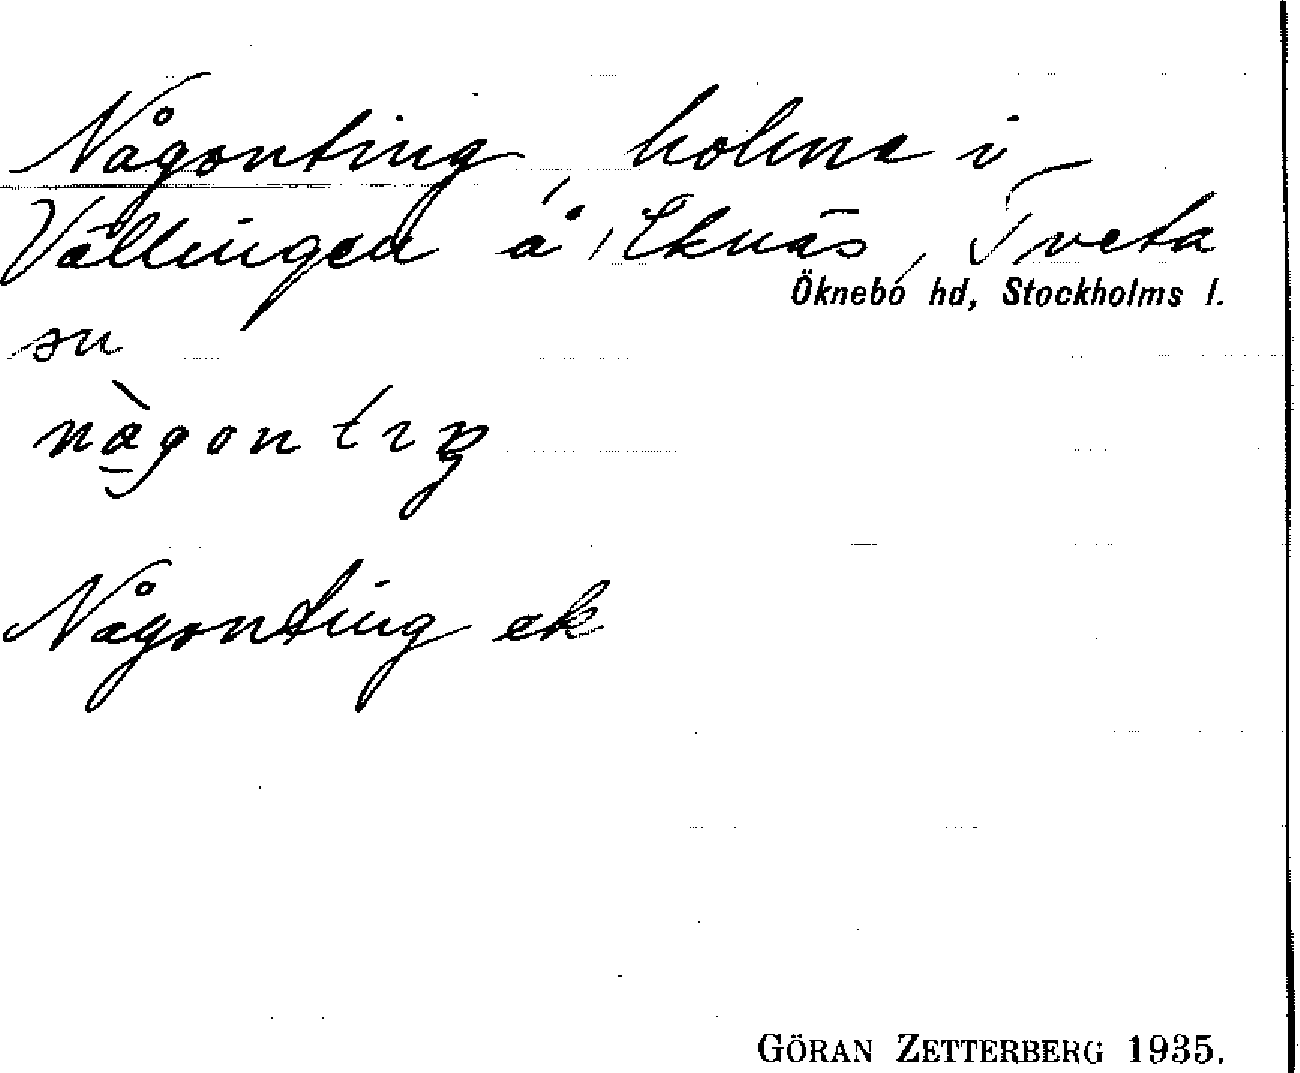 Någonting, holme i
Vällingen å Eknäs, Tveta
Öknebo hd, Stockholms l.
sn
nå̀gontıŋ
Någonting ek
GÖRAN ZETTERBERG 1935.